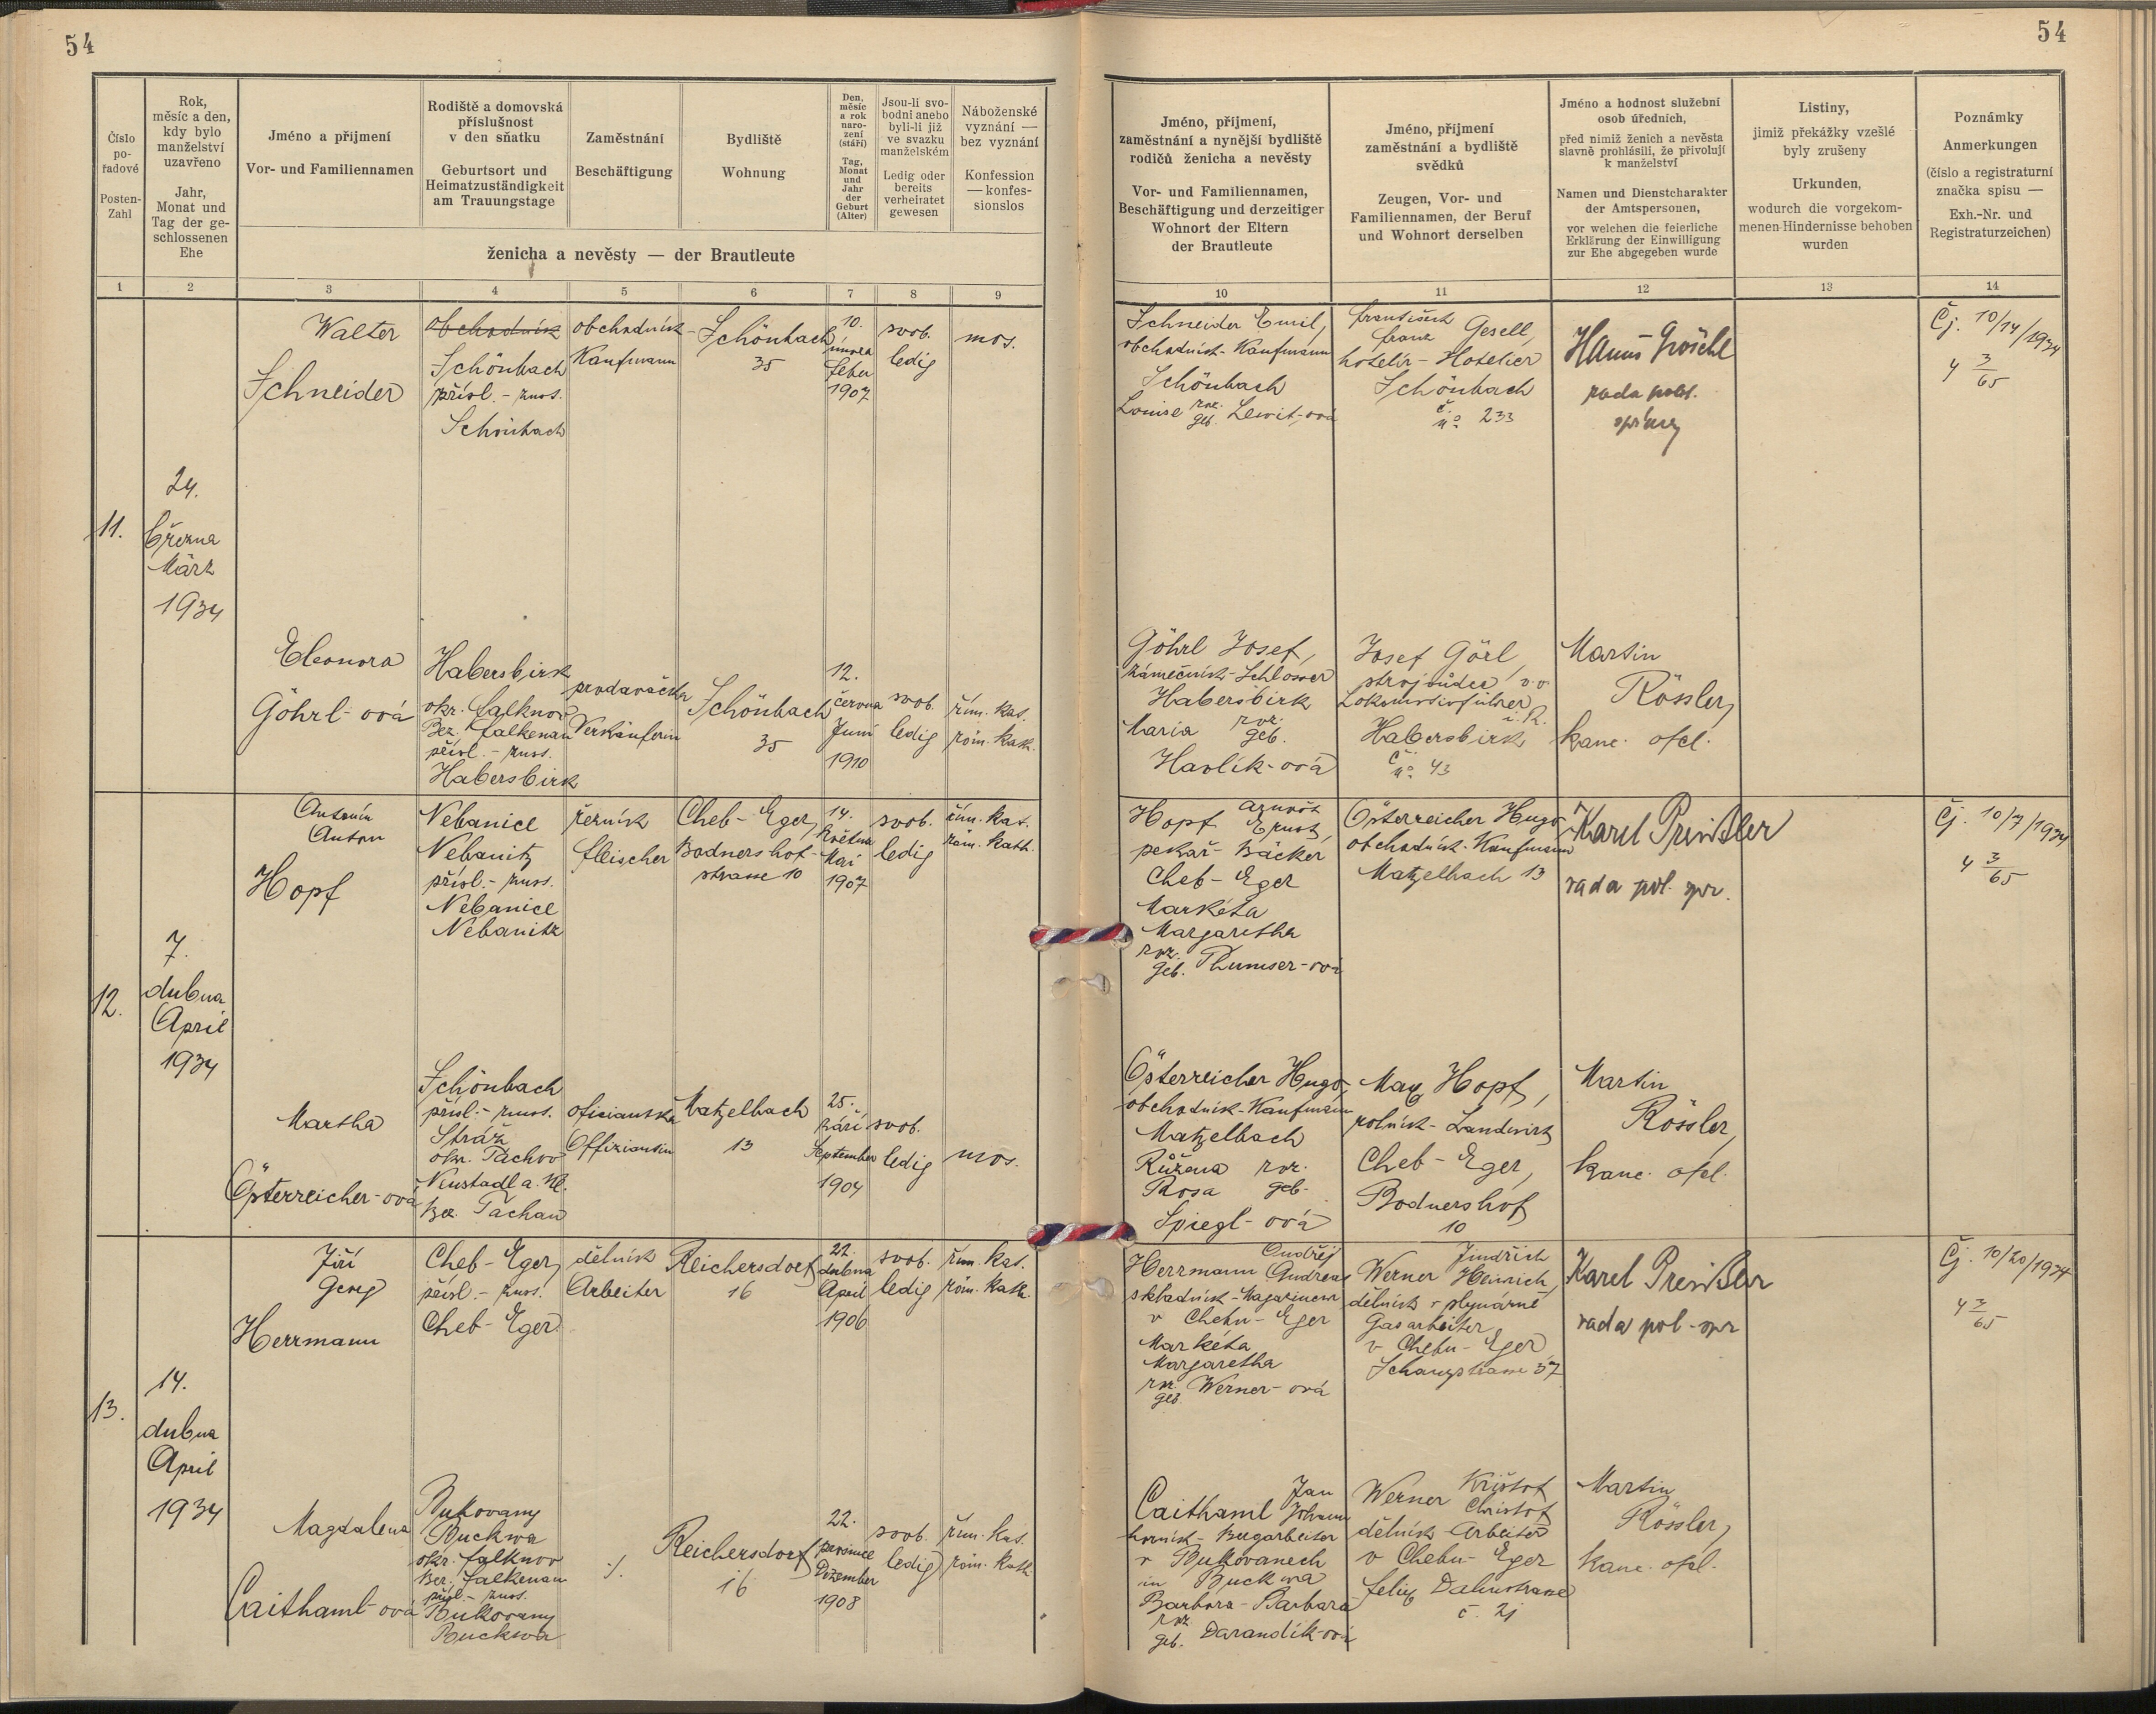 54
54
Číslo
po-
řadové
Posten-
Zahl
Rok,
měsíc a den,
kdy bylo
manželství
uzavřeno
Jahr,
Monat und
Tag der ge-
schlossenen
Ehe
Jméno a příjmení
Vor- und Familiennamen
Rodiště a domovská
příslušnost
v den sňatku
Geburtsort und
Heimatzuständigkeit
am Trauungstage
Zaměstnání
Beschäftigung
Bydliště
Wohnung
Den,
měsíc
a rok
naro-
zení
(stáří)
Tag,
Monat
und
Jahr
der
Geburt
(Alter)
Jsou-li svo-
bodni anebo
byli-li již
ve svazku
manželském
Ledig oder
bereits
verheiratet
gewesen
Náboženské
vyznání —
bez vyznání
Konfession
— konfes-
sionslos
ženicha a nevěsty — der Brautleute
Jméno, příjmení,
zaměstnání a nynější bydliště
rodičů ženicha a nevěsty
Vor- und Familiennamen,
Beschäftigung und derzeitiger
Wohnort der Eltern
der Brautleute
Jméno, příjmení
zaměstnání a bydliště
svědků
Zeugen, Vor- und
Familiennamen, der Beruf
und Wohnort derselben
Jméno a hodnost služební
osob úředních,
před nimiž ženich a nevěsta
slavně prohlásili, že přivolují
k manželství
Namen und Dienstcharakter
der Amtspersonen,
vor welchen die feierliche
Erklärung der Einwilligung
zur Ehe abgegeben wurde
Listiny,
jimiž překážky vzešlé
byly zrušeny
Urkunden,
wodurch die vorgekom-
menen Hindernisse behoben
wurden
Poznámky
Anmerkungen
(číslo a registraturní
značka spisu —
Exh.-Nr. und
Registraturzeichen)
1 2 3 4 5 6 7 8 9 10 11 12 13 14
11.
24.
března
März
1934
Walter
Schneider
obchodník
Schönbach
přísl. - zus.
Schönbach
obchodník-
Kaufmann
Schönbach
35
10.
února
Feber
1907
svob.
ledig
mos.
Schneider Emil,
obchodník - Kaufmann
Schönbach
Louise roz. geb. Lewit-ová
František
Franz Gesell,
hoteliér - Hotelier
Schönbach
č.
nº 233
Hanuš Gröschl
rada polit.
správy
Čj. 10/14/1934
4 3/65
Eleonora
Göhrl-ová
Habersbirk
okr. Falknov
Bez. Falkenau
přísl. - zus.
Habersbirk
prodavačka
Verkäuferin
Schönbach
35
12.
června
Juni
1910
svob.
ledig
řím. kat.
röm. kath.
Göhrl Josef,
zámečník - Schlosser
Habersbirk
Maria roz. geb.
Havlík-ová
Josef Görl,
strojvůdce v.v.
Lokomotivführer
i. R.
Habersbirk
č.
nº 43
Martin
Rössler,
kanc. ofcl.
12.
7.
dubna
April
1934
Antonín
Anton
Hopf
Nebanice
Nebanitz
přísl. - zuss.
Nebanice
Nebanitz
řezník
Fleischer
Cheb - Eger,
Bodnershof-
strasse 10
14.
května
Mai
1907
svob.
ledig
řím. kat.
röm. kath.
Hopf Arnošt
Ernst,
pekař - Bäcker
Cheb - Eger
Markéta
Margaretha
roz.
geb. Thumser-ová
Österreicher Hugo
obchodník - Kaufmann
Matzelbach 13
Karel Preissler
rada pol. spr.
Čj. 10/7/1934
4 3/65
Martha
Österreicher-ová
Schönbach
přísl. - zuss.
Stráž
okr. Tachov
Neustadl a. Kl.
Bez. Tachau
oficiantka
Offiziantin
Matzelbach
13
25.
září
September
1904
svob.
ledig
mos.
Österreicher Hugo,
obchodník - Kaufmann
Matzelbach
Růžena roz.
Rosa geb.
Spiegl-ová
Max Hopf,
rolník - Landwirt
Cheb - Eger,
Bodnershof
10
Martin
Rössler,
kanc. ofcl.
13.
14.
dubna
April
1934
Jiří
Georg
Herrmann
Cheb - Eger,
přísl. - zus.
Cheb - Eger
dělník
Arbeiter
Reichersdorf
16
22.
dubna
April
1906
svob.
ledig
řím. kat.
röm. kath.
Herrmann Ondřej
Andreas
skladník - Magazineur
v Chebu - Eger
Markéta
Margaretha
roz.
geb. Werner-ová
Werner Jindřich
Heinrich,
dělník v plynárně
Gasarbeiter
v Chebu - Eger
Schanzstrasse 37
Karel Preissler
rada pol. spr
Čj. 10/20/1934
4 3/65
Magdalena
Caithaml-ová
Bukovany
Buckwa
okr. Falknov
Bez. Falkenau
přísl. - zuss.
Bukovany
Buckwa
./.
Reichersdorf
16
22.
prosince
Dezember
1908
svob.
ledig
řím. kat.
röm. kath.
Caithaml Jan
Johann
horník - Bergarbeiter
v Bukovanech
in Buckwa
Barbora - Barbara
roz
geb. Darandík-ová
Werner Krištof
Christof
dělník - Arbeiter
v Chebu - Eger
Felix Dahnstrasse
č. 21
Martin
Rössler,
kanc. ofcl.